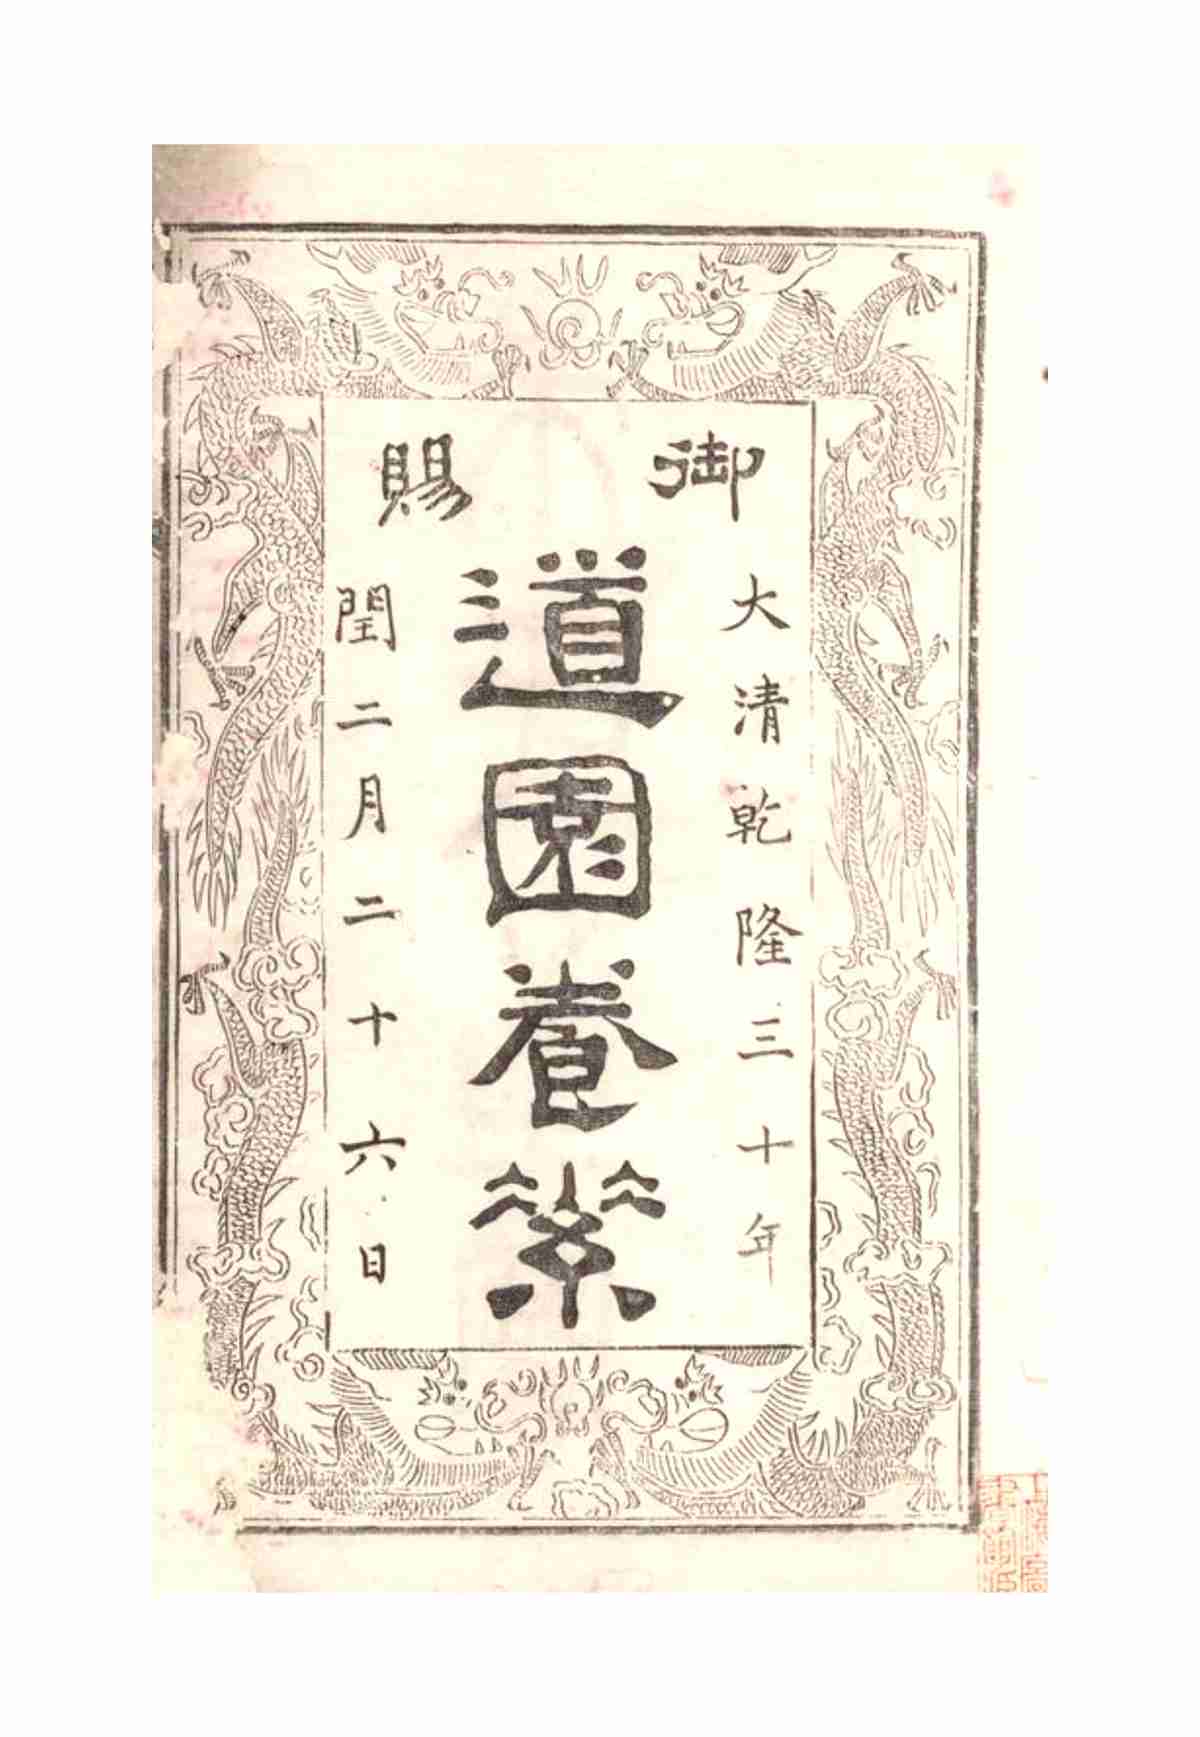 御賜
大清乾隆三十年
道園養素
閏二月二十六日